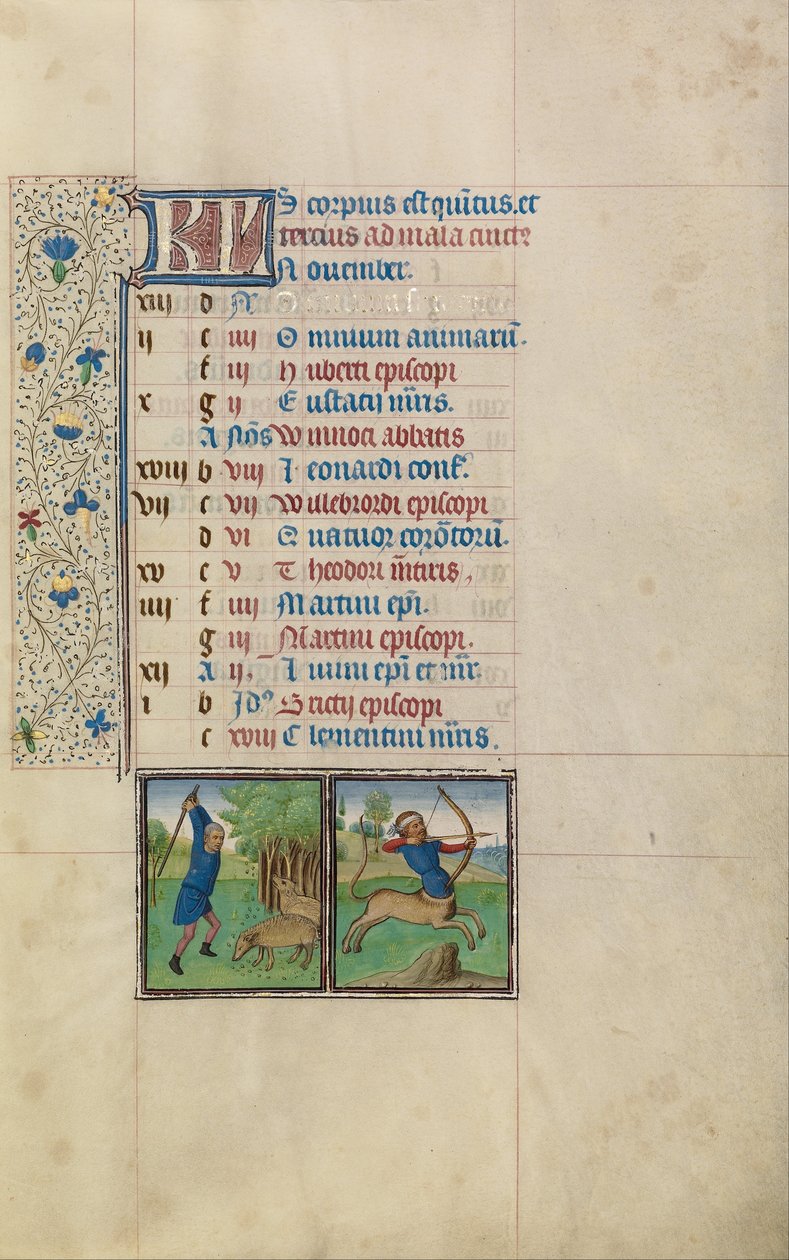 KL Scorpius est quītus. et
tercius ad mala cincte
Nouember.
xiii d N
ii e iiii Omnium animarū.
f iii Huberti episcopi
x g ii Eustacij mīris.
A Nōs Winnoci abbatis
xviii b viii Leonardi conf̄.
vii c vii Willebrordi episcopi
d vi Quatuor corōtorū.
xv e v Theodori m̄tiris,
iiii f iiii Martini ep̄i.
g iii Martini episcopi.
xii A ii. Liuini ep̄i et mīr.
i b Jdꝰ Brictij episcopi
c xviii Clementini mīris.